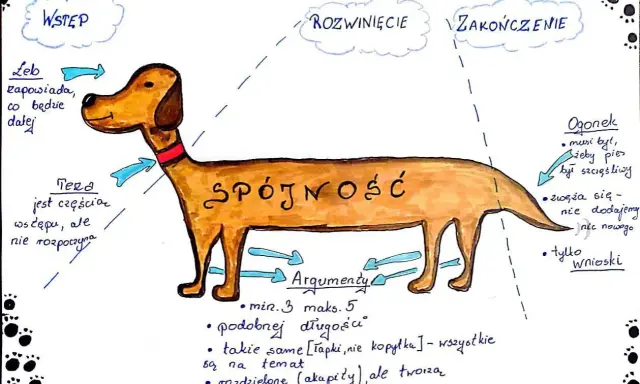 WSTĘP
ROZWINIĘCIE
ZAKOŃCZENIE
Łeb
zapowiada,
co będzie
dalej
Teza
jest częścią
wstępu, ale
nie rozpoczyna
SPÓJNOŚĆ
Ogonek
• musi być,
żeby pies
był szczęśliwy
• zwęża się -
nie dodajemy
nic nowego
• tylko
wnioski
Argumenty
• min. 3 maks. 5
• podobnej długości
• takie same [łapki, nie kopytka] - wszystkie
są na temat
• rozdzielone (akapity), ale tworzą